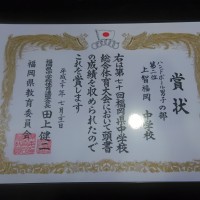 賞状
ハンドボール男子の部
第二位
上智福岡 中学校
右は第七十回福岡県中学校
総合体育大会において頭書
の成績を収められたので
これを賞します
平成三十年七月
福岡県中学校体育連盟会長 田上 健二
福岡県教育委員会